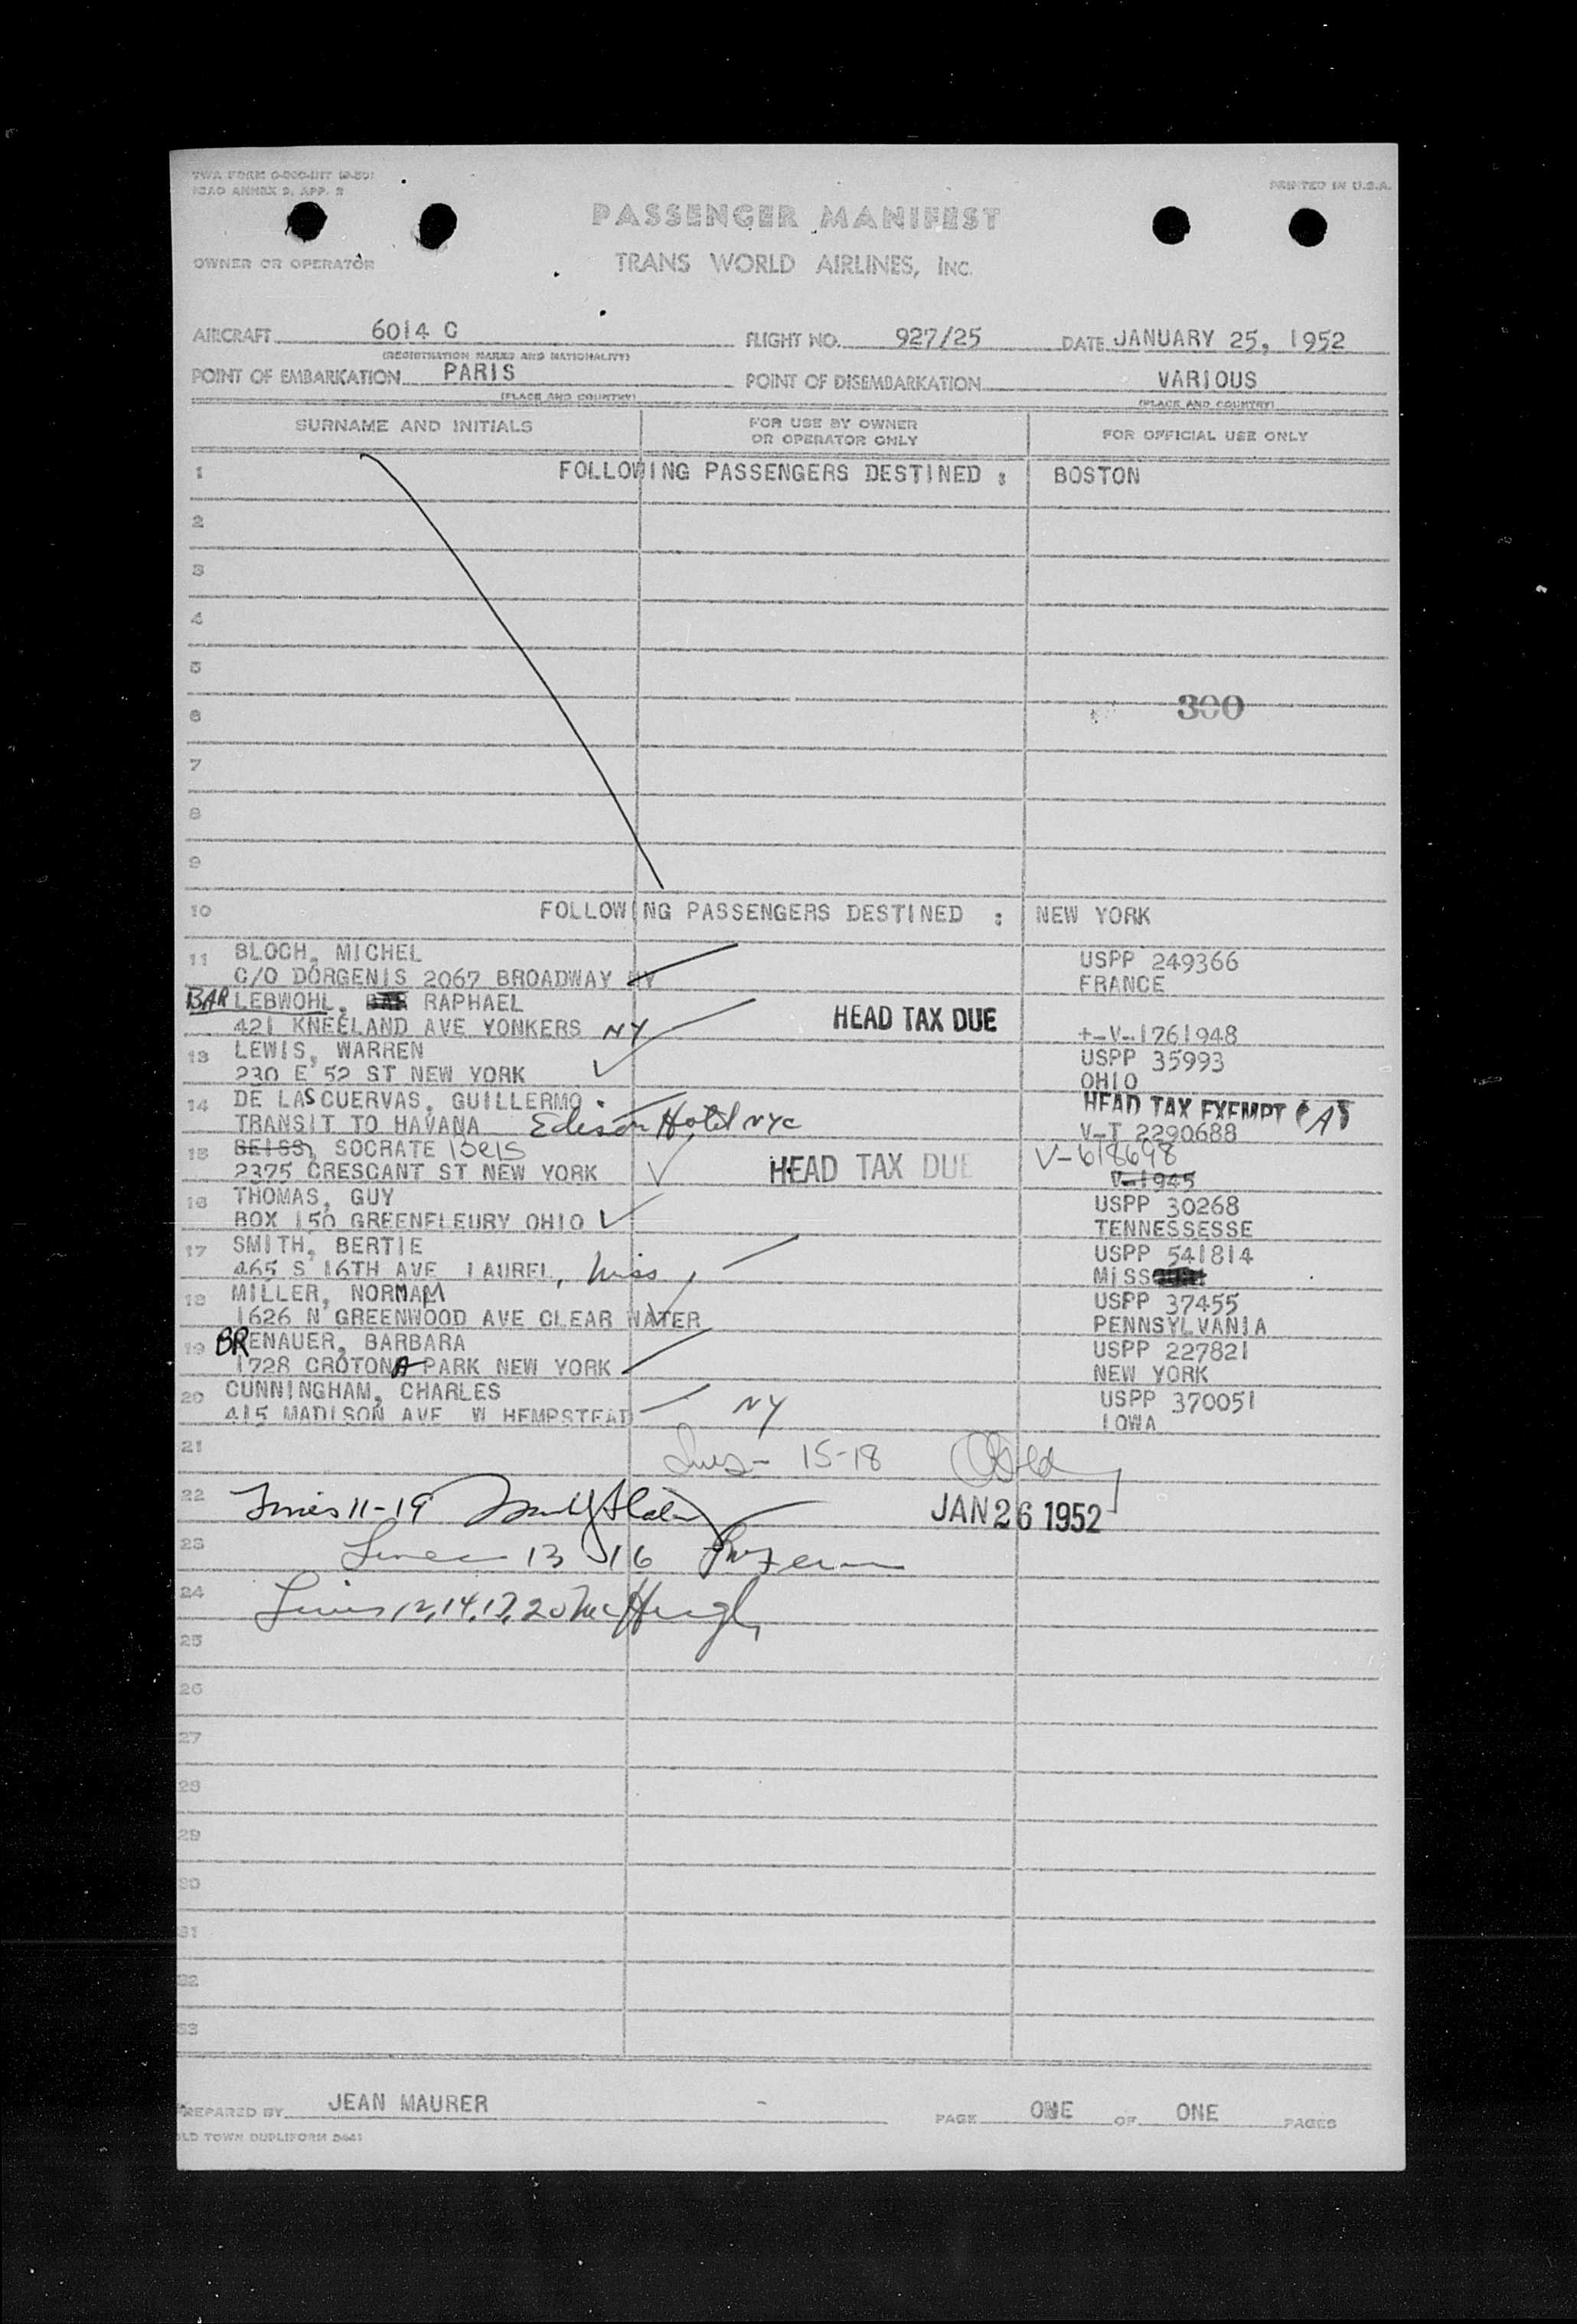 TWA FORM
ICAO ANNEX 9, APP. 2
PRINTED IN U.S.A.
PASSENGER MANIFEST
OWNER OR OPERATOR
TRANS WORLD AIRLINES, INC.
AIRCRAFT 6014 C FLIGHT NO. 927/25 DATE JANUARY 25, 1952
(REGISTRATION MARKS AND NATIONALITY)
POINT OF EMBARKATION PARIS POINT OF DISEMBARKATION VARIOUS
(PLACE AND COUNTRY) (PLACE AND COUNTRY)
SURNAME AND INITIALS FOR USE BY OWNER OR OPERATOR ONLY FOR OFFICIAL USE ONLY
1 FOLLOWING PASSENGERS DESTINED : BOSTON
2
3
4
5
6 300
7
8
9
10 FOLLOWING PASSENGERS DESTINED : NEW YORK
11 BLOCH, MICHEL USPP 249366
C/O DORGENIS 2067 BROADWAY NY FRANCE
BAR LEBWOHL, BAR RAPHAEL
421 KNEELAND AVE YONKERS NY HEAD TAX DUE +-V-1761948
13 LEWIS, WARREN USPP 35993
230 E 52 ST NEW YORK OHIO
14 DE LAS CUERVAS, GUILLERMO HEAD TAX EXEMPT (A)
TRANSIT TO HAVANA Edison Hotel NYC V-T 2290688
15 SEISS, SOCRATE Seis V-618698
2375 CRESCANT ST NEW YORK HEAD TAX DUE V-1945
16 THOMAS, GUY USPP 30268
BOX 150 GREENFLEURY OHIO TENNESSESSE
17 SMITH, BERTIE USPP 541814
465 S 16TH AVE LAUREL, Miss MISS
18 MILLER, NORMAN USPP 37455
1626 N GREENWOOD AVE CLEAR WATER PENNSYLVANIA
19 BRENAUER, BARBARA USPP 227821
1728 CROTONA PARK NEW YORK NEW YORK
20 CUNNINGHAM, CHARLES USPP 370051
415 MADISON AVE W HEMPSTEAD NY IOWA
21 Lines - 15-18
22 Lines 11-19 JAN 26 1952
23 Lines 13 16
24 Lines 12, 14, 17, 20 McHugh
25
26
27
28
29
30
31
32
33
PREPARED BY JEAN MAURER PAGE ONE OF ONE PAGES
OLD TOWN DUPLIFORM